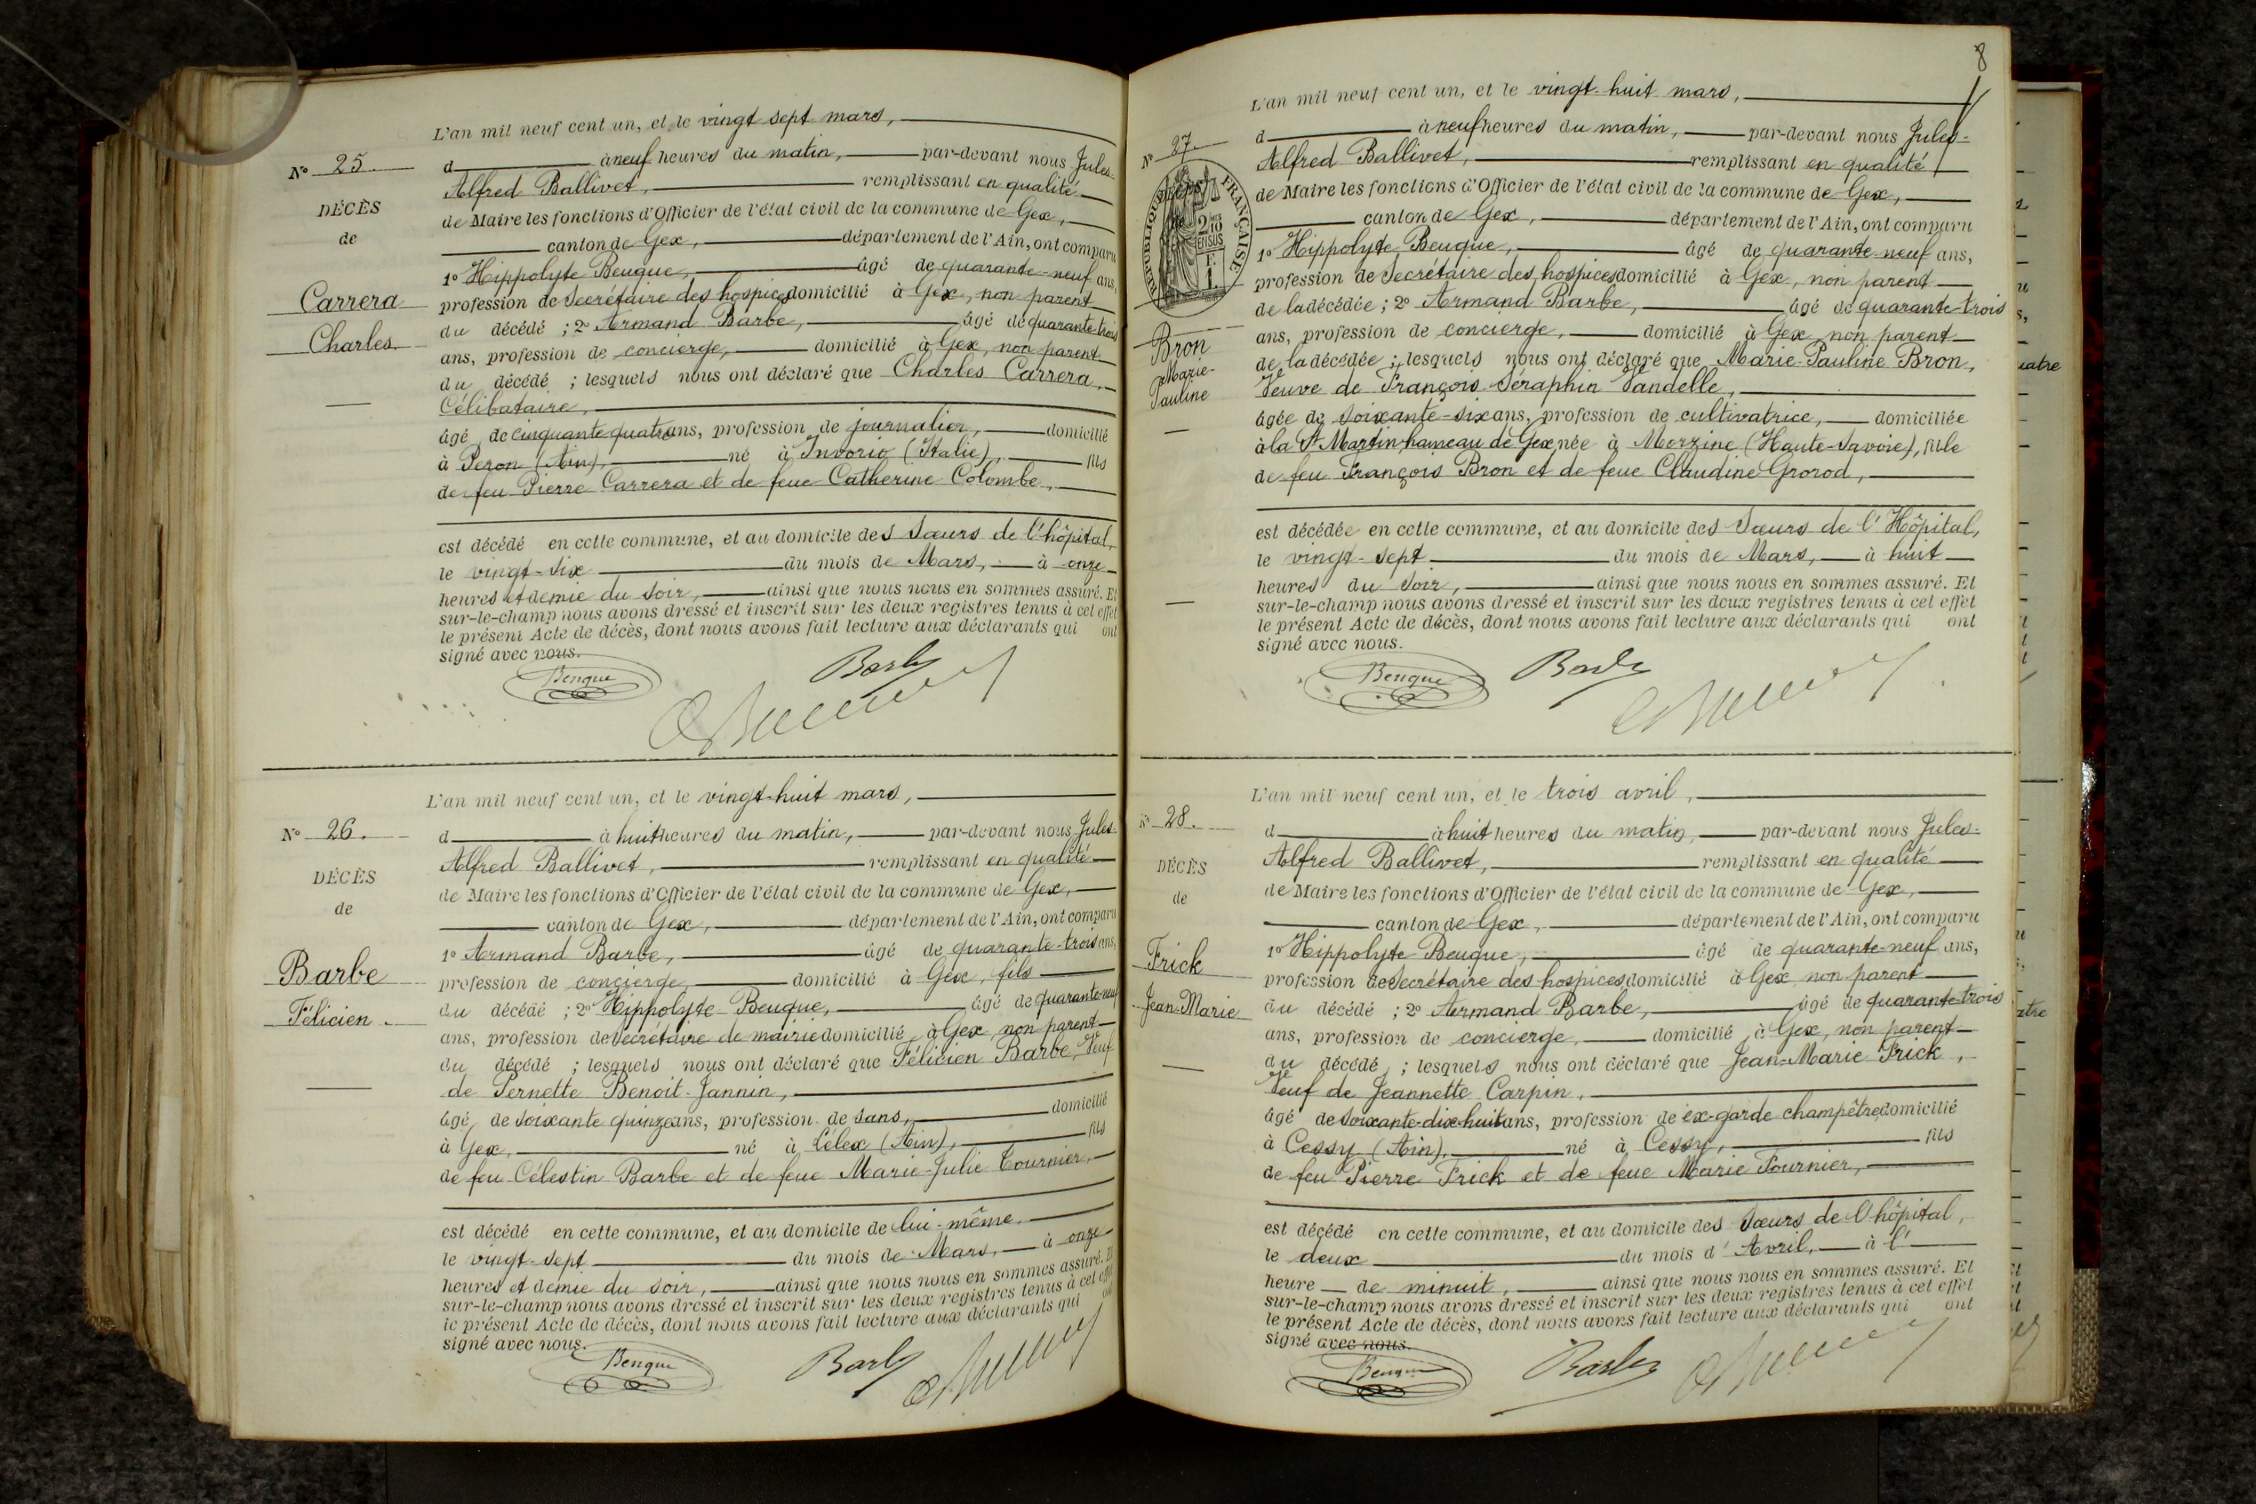 L'an mil neuf cent un, et le vingt sept mars,
N° 25.
d à neuf heures du matin, par-devant nous Jules-
Alfred Ballivet, remplissant en qualité
DÉCÈS
de Maire les fonctions d'Officier de l'état civil de la commune de Gex,
de
canton de Gex, département de l'Ain, ont comparu
1° Hippolyte Beuque, âgé de quarante-neuf ans,
Carrera
profession de Secrétaire des hospices domicilié à Gex, non parent
du décédé ; 2° Armand Barbe, âgé de quarante-trois
Charles
ans, profession de concierge, domicilié à Gex, non parent
du décédé ; lesquels nous ont déclaré que Charles Carrera,
Célibataire,
âgé de cinquante quatre ans, profession de journalier, domicilié
à Peron (Ain), né à Invorio (Italie), fils
de feu Pierre Carrera et de feue Catherine Colombe,
est décédé en cette commune, et au domicile des Sœurs de l'hôpital,
le vingt-six du mois de Mars, à onze
heures et demie du soir, ainsi que nous nous en sommes assuré. Et
sur-le-champ nous avons dressé et inscrit sur les deux registres tenus à cet effet
le présent Acte de décès, dont nous avons fait lecture aux déclarants qui ont
signé avec nous.
Beuque Barbe
L'an mil neuf cent un, et le vingt-huit mars,
N° 26.
d à huit heures du matin, par-devant nous Jules-
Alfred Ballivet, remplissant en qualité
DÉCÈS
de Maire les fonctions d'Officier de l'état civil de la commune de Gex,
de
canton de Gex, département de l'Ain, ont comparu
1° Armand Barbe, âgé de quarante-trois ans,
Barbe
profession de concierge, domicilié à Gex, fils
Félicien
du décédé ; 2° Hippolyte Beuque, âgé de quarante-neuf
ans, profession de Secrétaire de mairie domicilié à Gex, non parent
du décédé ; lesquels nous ont déclaré que Félicien Barbe, Veuf
de Pernette Benoit-Jannin,
âgé de soixante quinze ans, profession de sans, domicilié
à Gex, né à Lélex (Ain), fils
de feu Célestin Barbe et de feue Marie-Julie Tournier,
est décédé en cette commune, et au domicile de lui-même,
le vingt-sept du mois de Mars, à onze
heures et demie du soir, ainsi que nous nous en sommes assuré. Et
sur-le-champ nous avons dressé et inscrit sur les deux registres tenus à cet effet
le présent Acte de décès, dont nous avons fait lecture aux déclarants qui ont
signé avec nous.
Beuque Barbe
8
L'an mil neuf cent un, et le vingt-huit mars,
N° 27.
d à neuf heures du matin, par-devant nous Jules-
Alfred Ballivet, remplissant en qualité
RÉPUBLIQUE FRANÇAISE
de Maire les fonctions d'Officier de l'état civil de la commune de Gex,
canton de Gex, département de l'Ain, ont comparu
1° Hippolyte Beuque, âgé de quarante-neuf ans,
profession de Secrétaire des hospices domicilié à Gex, non parent
de la décédée ; 2° Armand Barbe, âgé de quarante-trois
ans, profession de concierge, domicilié à Gex, non parent
Bron
de la décédée ; lesquels nous ont déclaré que Marie-Pauline Bron,
Marie-
Veuve de François Séraphin Vandelle,
Pauline
âgée de soixante-six ans, profession de cultivatrice, domiciliée
à la St Martin hameau de Gex née à Morzine (Haute-Savoie), fille
de feu François Bron et de feue Claudine Grorod,
est décédée en cette commune, et au domicile des Sœurs de l'Hôpital,
le vingt-sept du mois de Mars, à huit
heures du soir, ainsi que nous nous en sommes assuré. Et
sur-le-champ nous avons dressé et inscrit sur les deux registres tenus à cet effet
le présent Acte de décès, dont nous avons fait lecture aux déclarants qui ont
signé avec nous.
Beuque Barbe
L'an mil neuf cent un, et le trois avril,
N° 28.
d à huit heures du matin, par-devant nous Jules-
Alfred Ballivet, remplissant en qualité
DÉCÈS
de Maire les fonctions d'Officier de l'état civil de la commune de Gex,
de
canton de Gex, département de l'Ain, ont comparu
1° Hippolyte Beuque, âgé de quarante-neuf ans,
Frick
profession de Secrétaire des hospices domicilié à Gex, non parent
Jean-Marie
du décédé ; 2° Armand Barbe, âgé de quarante-trois
ans, profession de concierge, domicilié à Gex, non parent
du décédé ; lesquels nous ont déclaré que Jean-Marie Frick,
Veuf de Jeannette Carpin,
âgé de soixante-dix-huit ans, profession de ex-garde champêtre, domicilié
à Cessy (Ain), né à Cessy, fils
de feu Pierre Frick et de feue Marie Fournier,
est décédé en cette commune, et au domicile des Sœurs de l'hôpital,
le deux du mois d'Avril, à l'
heure de minuit, ainsi que nous nous en sommes assuré. Et
sur-le-champ nous avons dressé et inscrit sur les deux registres tenus à cet effet
le présent Acte de décès, dont nous avons fait lecture aux déclarants qui ont
signé avec nous.
Beuque Barbe